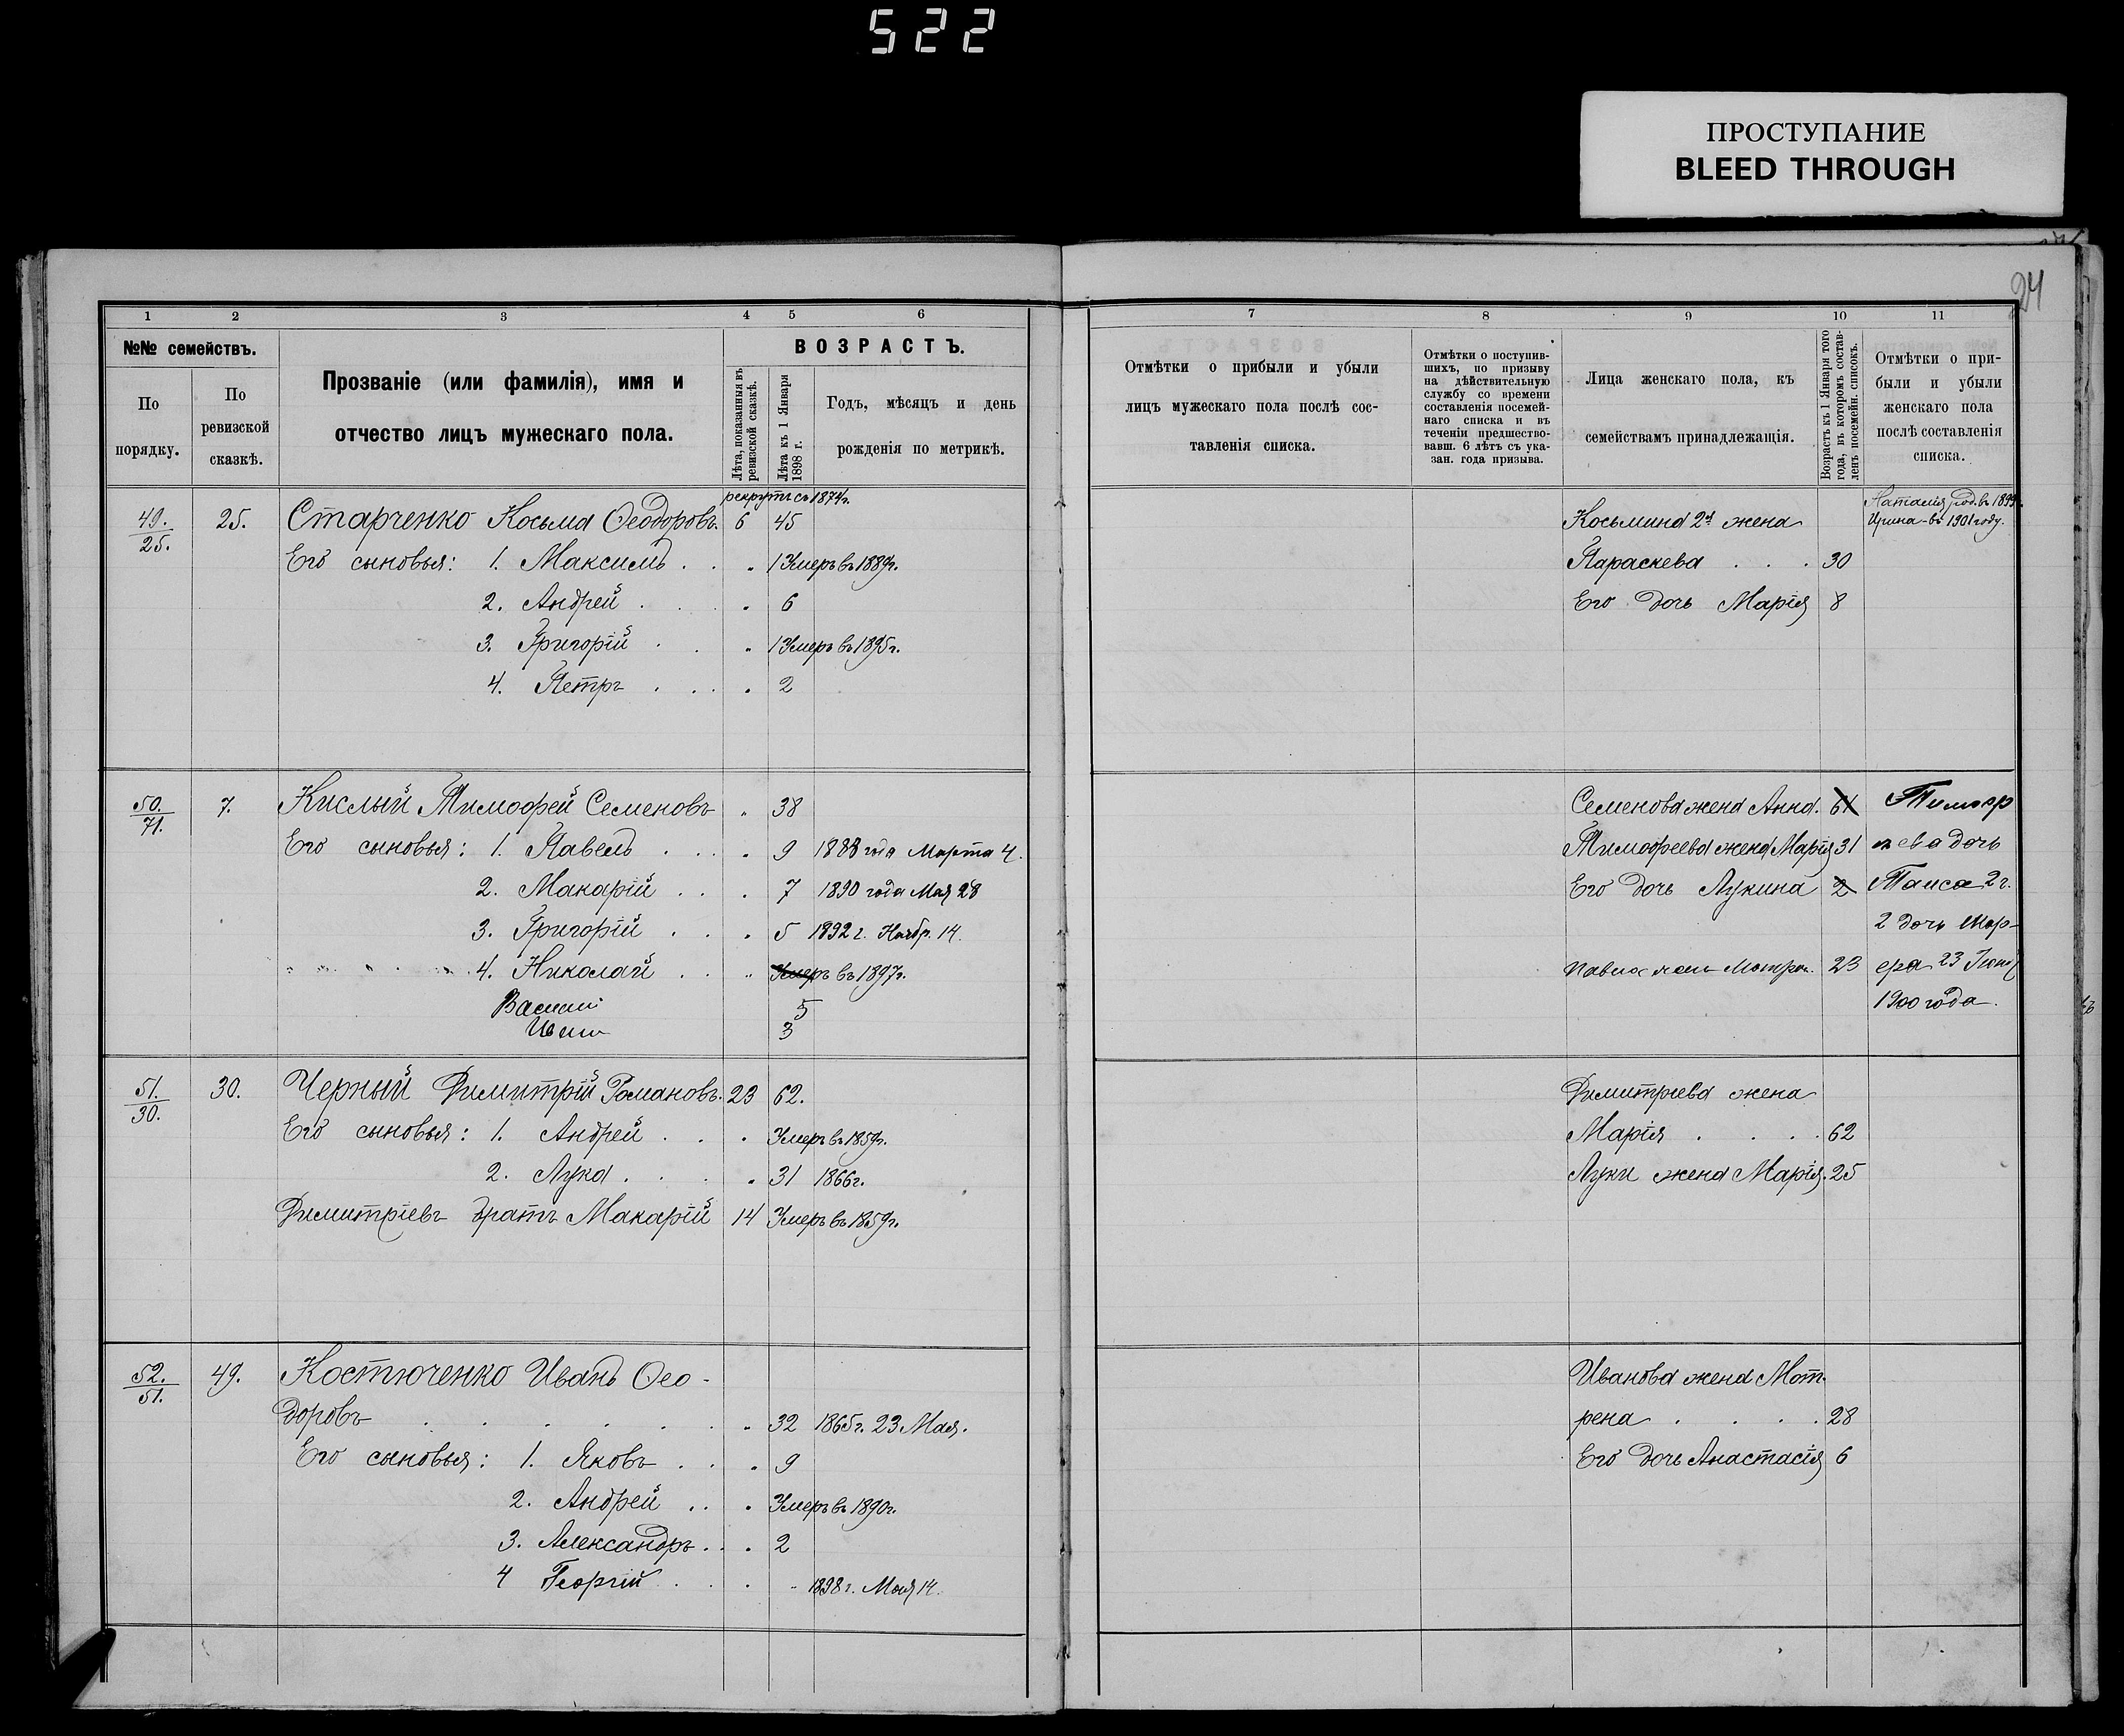 522
ПРОСТУПАНИЕ
BLEED THROUGH
24
1 2 3 4 5 6
№№ семействъ.
По порядку.
По ревизской сказкѣ.
Прозваніе (или фамилія), имя и
отчество лицъ мужескаго пола.
ВОЗРАСТЪ.
Лѣта, показанныя въ ревизской сказкѣ.
Лѣта къ 1 Января 1898 г.
Годъ, мѣсяцъ и день
рожденія по метрикѣ.
7 8 9 10 11
Отмѣтки о прибыли и убыли
лицъ мужескаго пола послѣ сос-
тавленія списка.
Отмѣтки о поступив-
шихъ, по призыву
на дѣйствительную
службу со времени
составленія посемей-
наго списка и въ
теченіи предшество-
вавш. 6 лѣтъ съ ука-
зан. года призыва.
Лица женскаго пола, къ
семействамъ принадлежащія.
Возрастъ къ 1 Января того
года, въ которомъ состав-
ленъ посемейн. списокъ.
Отмѣтки о при-
были и убыли
женскаго пола
послѣ составленія
списка.
рекрутъ съ 1874г.
49./25. 25. Старченко Косьма Ѳеодоровъ. 6 45
Его сыновья: 1. Максимъ . . " 1 Умеръ въ 1889г.
2. Андрей . . " 6
3. Григорій . . " 1 Умеръ въ 1895г.
4. Петръ . . . " 2
Косьмина 2я жена
Параскева . . . 30
Его дочь Марія 8
Наталія род. въ 1899.
Ирина - въ 1901 году.
50./71. 7. Кислый Тимофей Семеновъ " 38
Его сыновья: 1. Павелъ . . . " 9 1888 года Марта 4.
2. Макарій . . . 7 1890 года Мая 28
3. Григорій . . . 5 1892 г. Ноябр. 14.
4. Николай . . " Умеръ въ 1897г.
Василий 5
Иван 3
Семенова жена Анна. 61
Тимофеева жена Марія 31
Его дочь Лукина 2
Павла жена Мотрон. 23
Тимоф
еева дочь
Таиса 2 г.
2 дочь Мар-
23 Іюня
1900 года.
51./30. 30. Черный Димитрій Романовъ. 23 62.
Его сыновья: 1. Андрей . . . Умеръ въ 1859г.
2. Лука . . . " 31 1866г.
Димитріевъ братъ Макарій 14 Умеръ въ 1859г.
Димитріева жена
Марія . . . . 62
Луки жена Марія. 25
52./51. 49. Костюченко Иванъ Ѳео-
доровъ . . . . . . " 32 1865г. 23 Мая.
Его сыновья: 1. Яковъ . . . 9
2. Андрей . . . Умеръ въ 1890г.
3. Александръ . . . 2
4 Георгій . . . - 1898 г. Мая 14.
Иванова жена Мот-
рена . . . . 28
Его дочь Анастасія 6